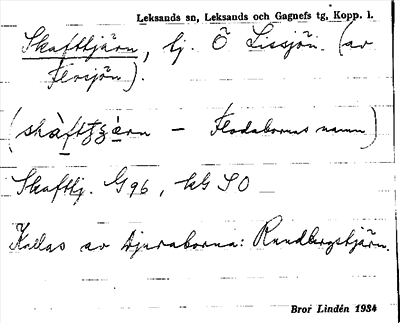 Leksands sn, Leksands och Gagnefs tg, Kopp. l.
Skafttjärn, tj. Ö Lissjön. (av
Flosjön).
(skàfttzærn – Flodabornas namn)
Skafttj. G 96, kbl SO
Kallas av Djuraborna: Rundbergstjärn.
Bror Lindén 1934